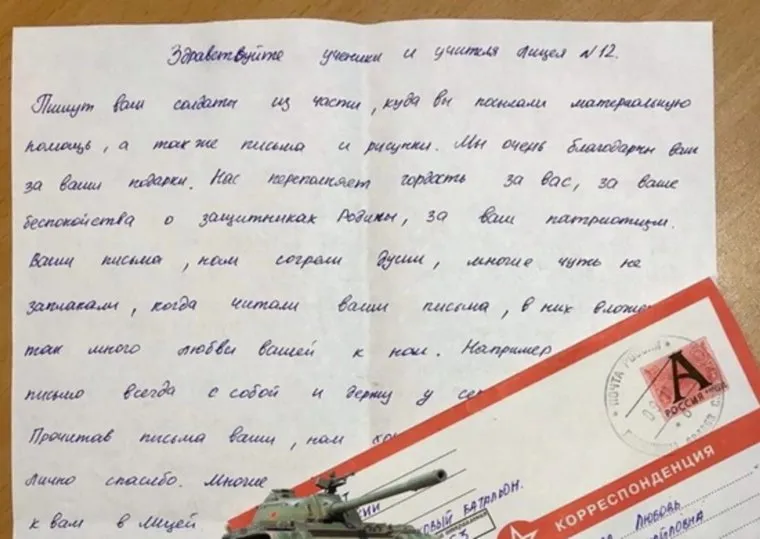 Здравствуйте ученики и учителя Лицея №12.
Пишут вам солдаты из части, куда вы посылали материальную
помощь, а также письма и рисунки. Мы очень благодарны вам
за ваши подарки. Нас переполняет гордость за вас, за ваше
беспокойства о защитниках Родины, за ваш патриотизм.
Ваши письма, нам согрели души, многие чуть не
заплакали, когда читали ваши письма, в них вложе
так много любви вашей к нам. Например
письмо всегда с собой и держу у се
Прочитав письма ваши, нам хо
лично спасибо. Многие
к вам в Лицей.
ковый Батальон.
ПОЧТА РОССИИ
А
РОССИЯ
КОРРЕСПОНДЕНЦИЯ
Любовь